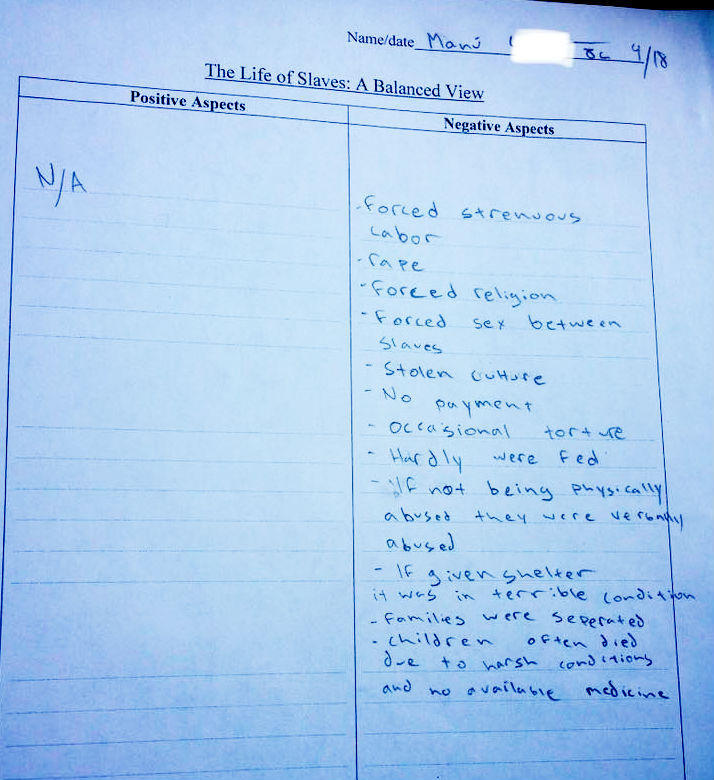 Name/date Manú 8c 4/18
The Life of Slaves: A Balanced View
Positive Aspects
Negative Aspects
N/A
- forced strenuous
labor
- rape
- forced religion
- forced sex between
slaves
- Stolen culture
- No payment
- occasional torture
- Hardly were fed
- If not being physically
abused they were verbally
abused
- If given shelter
it was in terrible condition
- families were seperated
- children often died
due to harsh conditions
and no available medicine